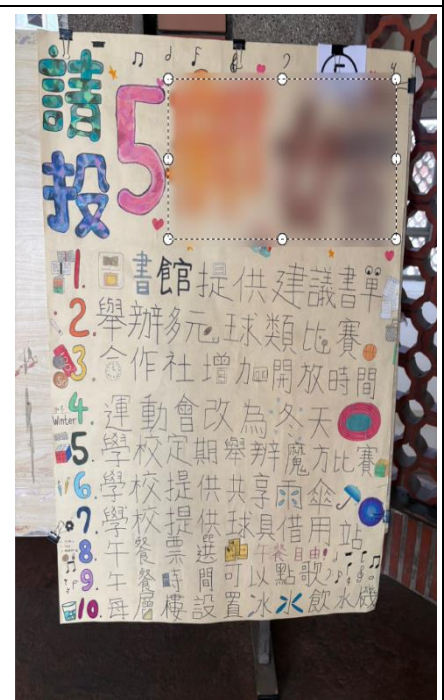 請投5
1.圖書館提供建議書單
2.舉辦多元球類比賽
3.合作社增加開放時間
Winter
4.運動會改為冬天
5.學校定期舉辦魔方比賽
6.學校提供共享雨傘
7.學校提供球具借用站
8.午餐票選 午餐自由!
9.午餐時間可以點歌
10.每層樓設置冰水飲水機